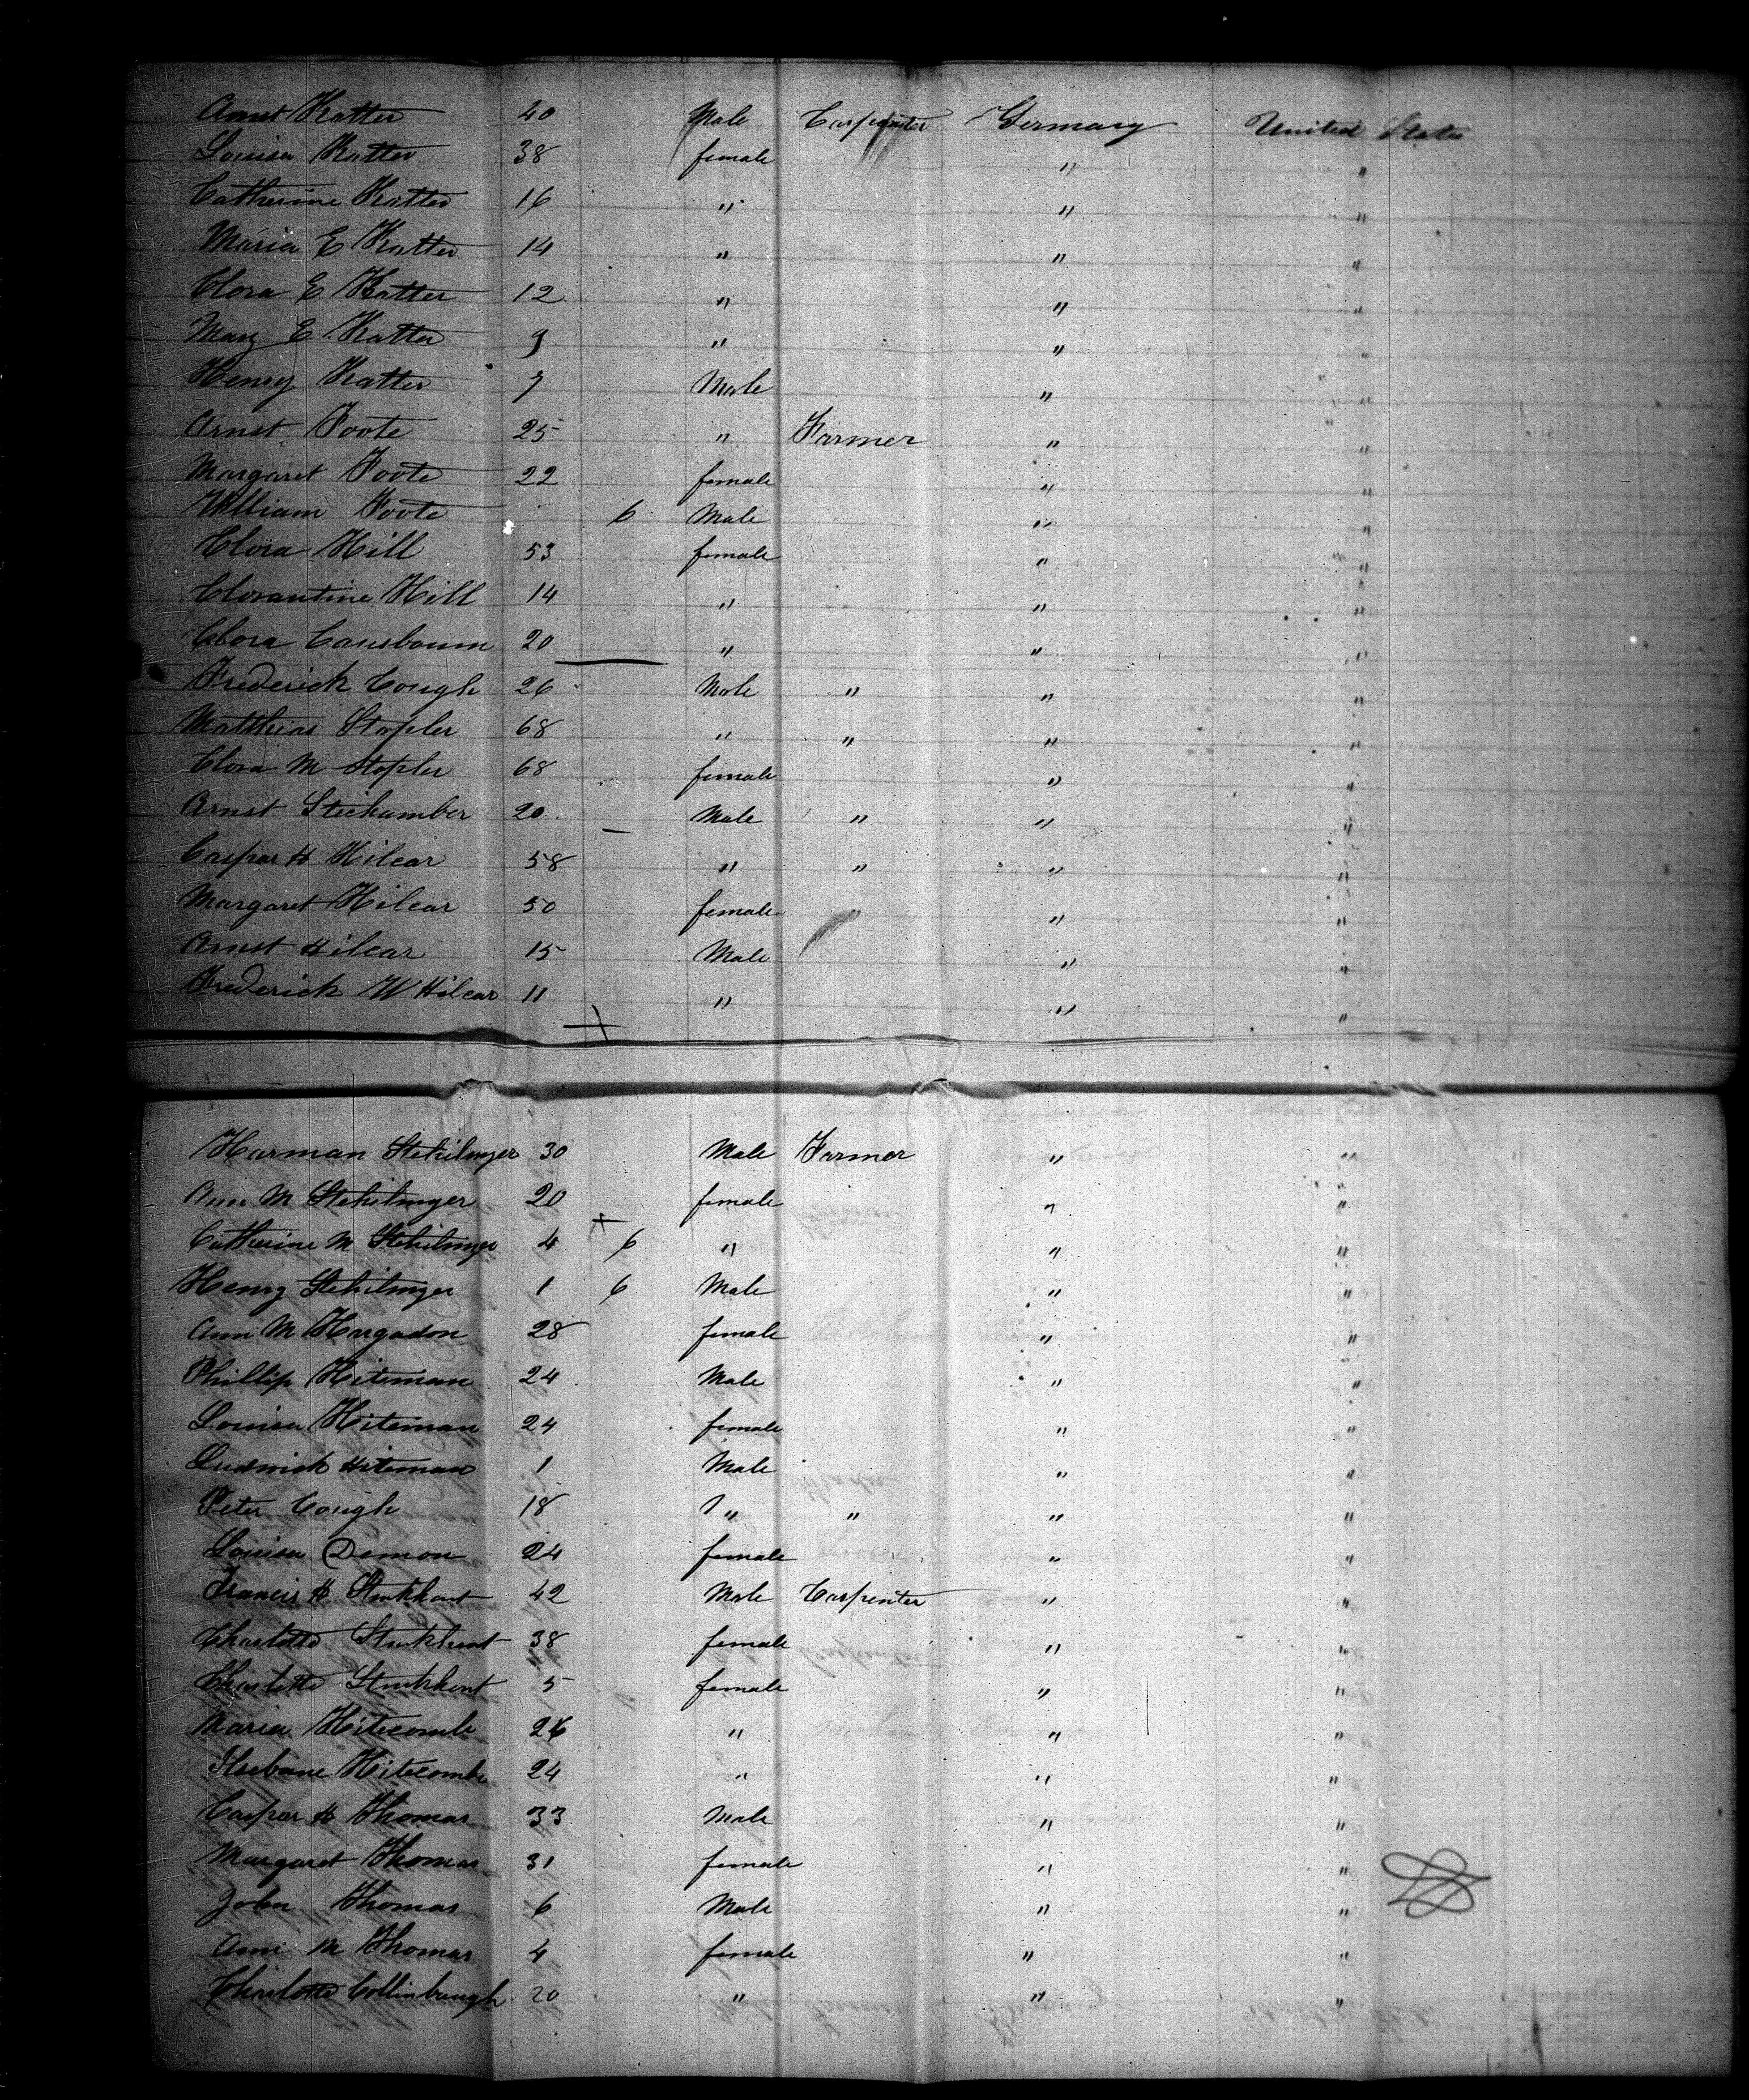 Arnst Katter 40 Male Carpenter Germany United States
Louisa Katter 38 female " "
Catherine Katter 16 " " "
Maria E Katter 14 " " "
Clora E Katter 12 " " "
Mary E Katter 9 " " "
Henry Katter 7 Male " "
Arnst Foote 25 " Farmer " "
Margaret Foote 22 female " "
William Foote 6 Male " "
Clora Hill 53 female " "
Clorantine Hill 14 " " "
Clora Causbaum 20 " " "
Frederick Cough 26 Male " " "
Matthias Stopler 68 " " " "
Clora M Stopler 68 female " "
Arnst Steckamber 20 Male " " "
Caspar H Hilcar 58 " " " "
Margaret Hilcar 50 female " "
Arnst Hilcar 15 Male " "
Frederick W Hilcar 11 " " "
Harman Stehilmger 30 Male Farmer " "
Ann M Stehilmger 20 female " "
Catherine M Stehilmger 4 6 " " "
Henry Stehilmger 1 6 Male " "
Ann M Hargadon 28 female " "
Phillip Hiteman 24 Male " "
Louisa Hiteman 24 female " "
Ludwick Hiteman 1 Male " "
Peter Cough 18 " " " "
Louisa Demon 24 female " "
Francis H 42 Male Carpenter " "
Charlotte 38 female " "
Charlotte 5 female " "
Maria Hitecomb 26 " " "
Hitecomb 24 " " "
Caspar H Thomas 33 Male " "
Margaret Thomas 31 female " "
John Thomas 6 Male " "
Ann M Thomas 4 female " "
Charlotte Collinbaugh 20 " " "